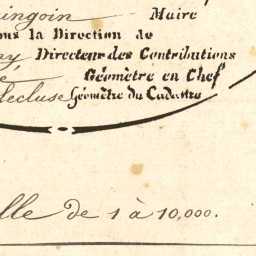 ingoin Maire
ous la Direction de
ay Directeur des Contributions
Géomètre en Chef
Lecluse Géomètre du Cadastre
lle de 1 à 10,000.